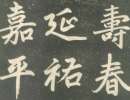 壽春
延祐
嘉平